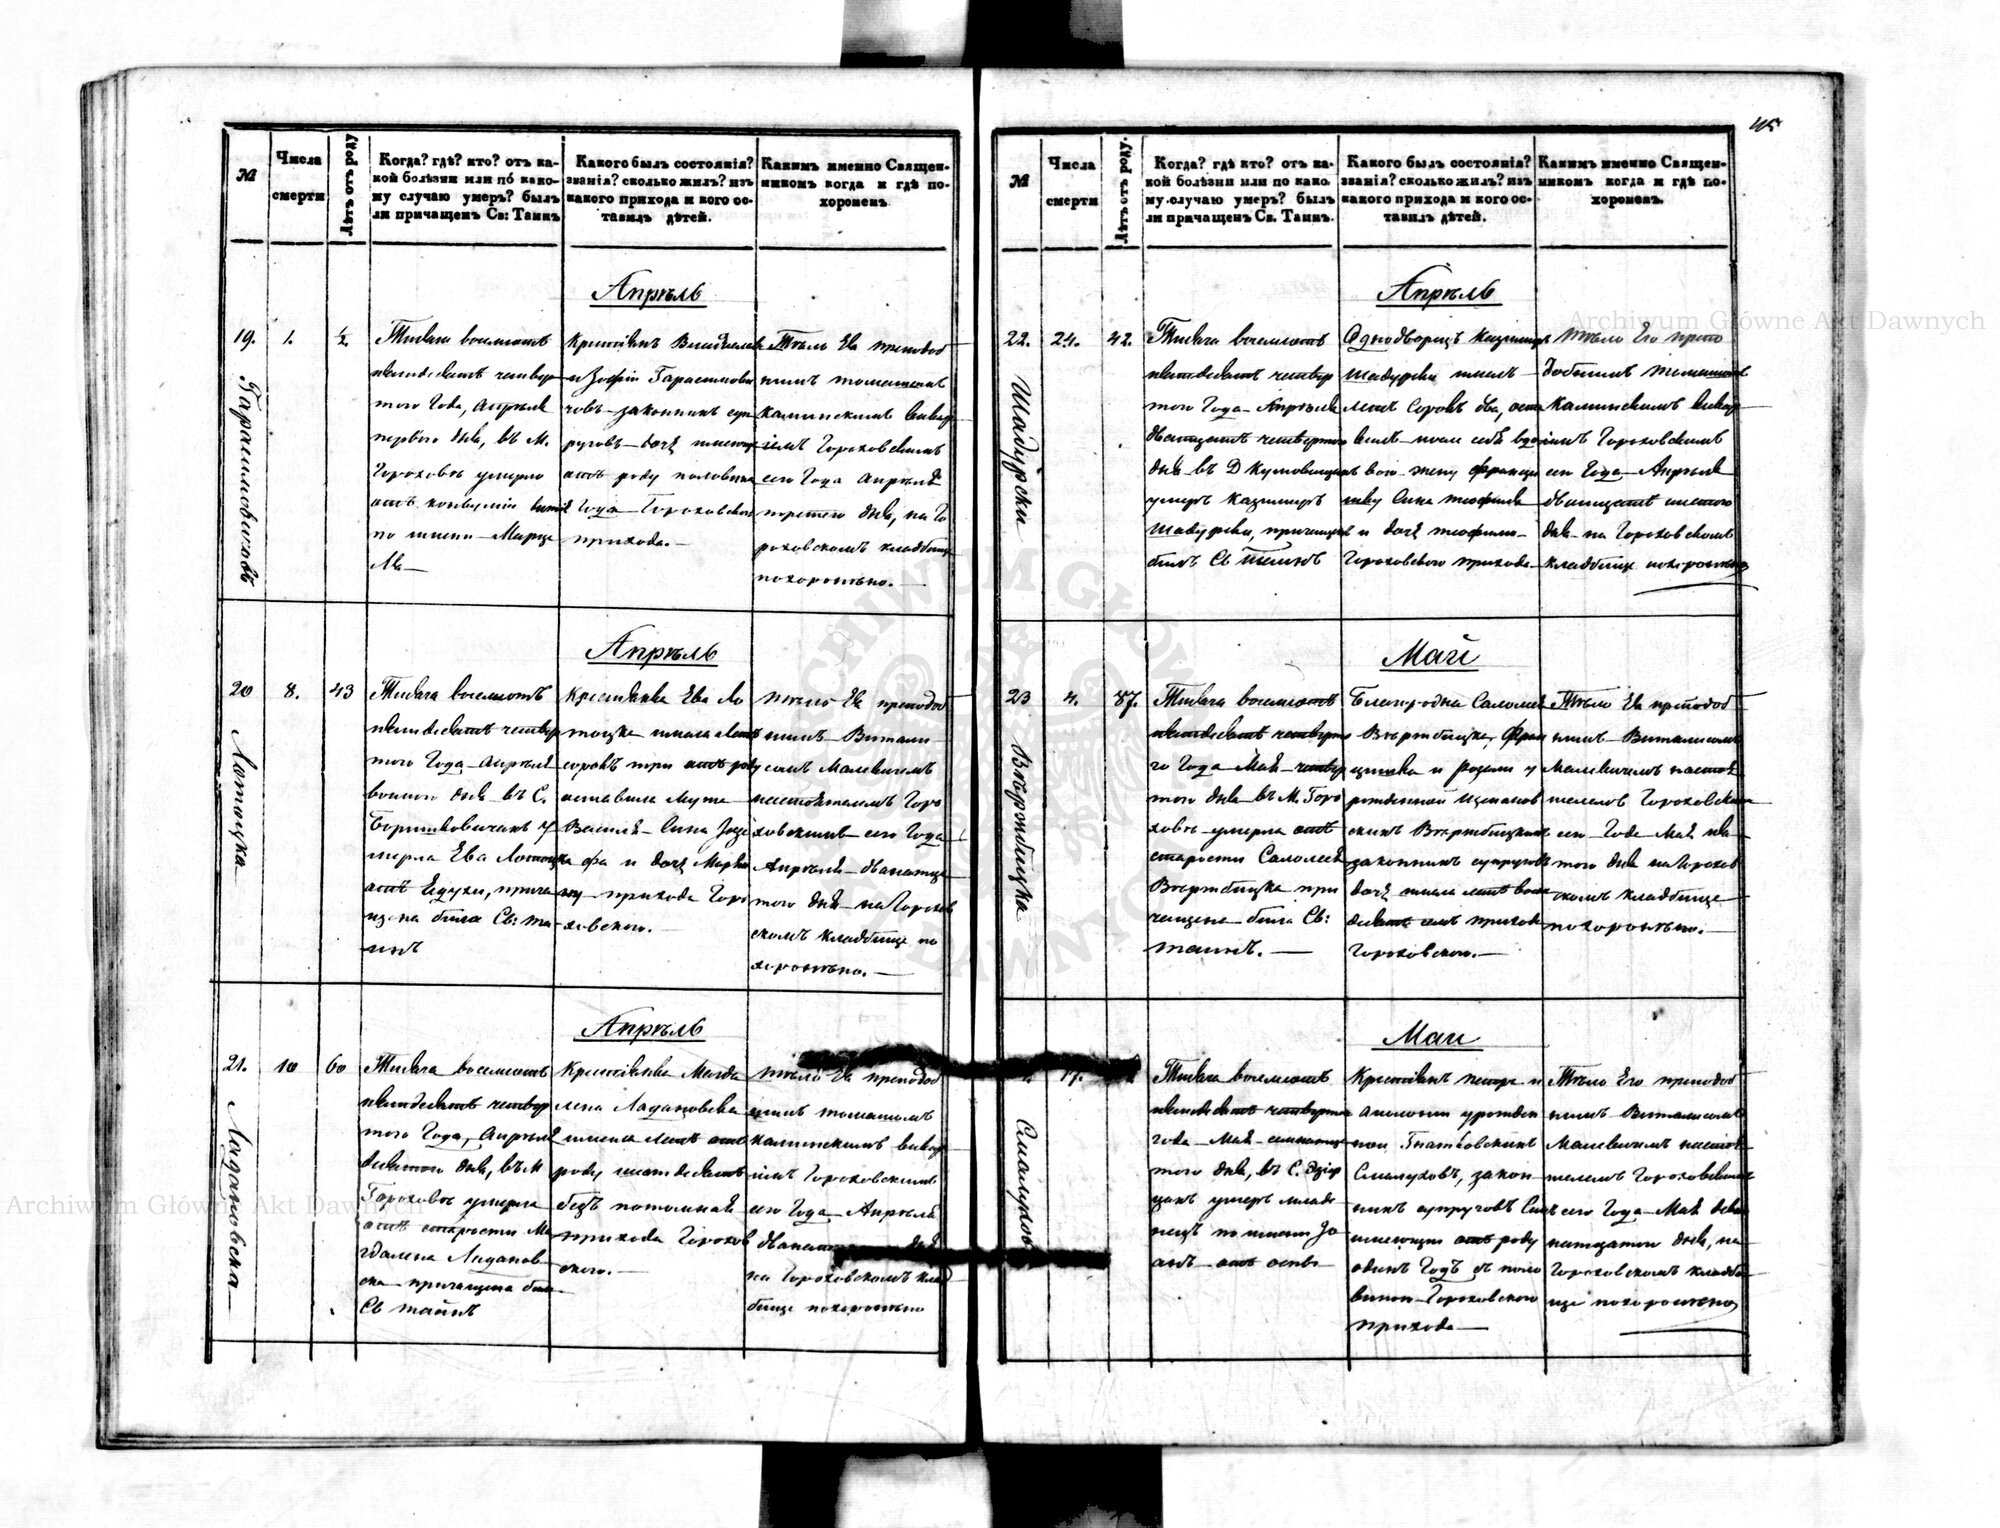 45
№
Числа
смерти
Лѣтъ отъ роду
Когда? гдѣ? кто? отъ ка-
кой болѣзни или по како-
му случаю умеръ? былъ
ли причащенъ Св: Таинъ
Какого былъ состоянія?
званія? сколько жилъ? изъ
какого прихода и кого ос-
тавилъ дѣтей.
Какимъ именно Священ-
никомъ когда и гдѣ по-
хороненъ.
Апрѣль
19.
1.
½
Тысяча восемьсотъ
пятьдесятъ четвер
того Года, Апрѣля
первого дня, въ М.
Гороховѣ умерло
отъ конвулсіи
по имени Марце
Крестьянъ
и Зофіи
човъ законныхъ суп
руговъ дочь
отъ роду половина
Года Гороховского
прихода.
Тѣло Ея преподоб
нымъ Томашомъ
Каминскимъ викар
імъ Гороховскимъ
сего Года Апрѣля
третего дня, на Го
роховскомъ кладбище
похоронѣно.
Апрѣль
20
8.
43
Лотоцка
Тысяча восемьсотъ
пятьдесятъ четвер
того Года Апрѣля
восмого дня въ С.
у
мерла Ева Лотоцка
отъ прича
щена была Св: та
инъ
Крестьянка Ева Ло
тоцка имѣла лѣтъ
сорокъ три отъ роду
оставила мужа
Василя Сына Іозе
фа и дочь
прихода Горо
ховского.
Тѣло Ея преподоб
нымъ Витали
сомъ Малевичемъ
настоятелемъ Горо
ховскимъ сего Года
Апрѣля дванатца
того дня на Горохов
скомъ кладбище по
хоронѣно.
Апрѣль
21.
10
60
Ладановска
Тысяча восемьсотъ
пятьдесятъ четвер
того Года, Апрѣля
десятого дня, въ М
Гороховѣ умерла
отъ старости Ма
гдалена Ладанов
ска причащена была
Св тайнъ
Крестьянка Магда
лена Ладановска
имѣла лѣтъ отъ
роду шестьдесятъ
безъ
прихода Горохов
ского.
Тѣло Ея преподоб
нымъ Томашомъ
Каминскимъ викар
імъ Гороховскимъ
сего Года Апрѣля
дня
на Гороховскомъ клад
бище похоронѣно
№
Числа
смерти
Лѣтъ отъ роду.
Когда? гдѣ кто? отъ ка-
кой болѣзни или по како
му случаю умеръ? былъ
ли причащенъ Св. Таинъ.
Какого былъ состоянія?
званія? сколько жилъ? изъ
какого прихода и кого ос-
тавилъ дѣтей.
Какимъ именно Священ-
никомъ когда и гдѣ по-
хороненъ.
Апрѣль
22.
24.
42.
Шадурски
Тысяча восемьсотъ
пятьдесятъ четвер
того Года Апрѣля
двадцать четвертого
дня въ Д
умеръ Казимиръ
Шадурски, причащенъ
былъ Св таинъ
Однодворецъ Казимиръ
Шадурски имѣлъ
лѣтъ Сорокъ два, оста
вилъ после себя вдо
вою жену Францы
шку Сына Теофиля
и дочь Теофилю
Гороховского прихода
Тѣло Его препо
добнымъ Томашомъ
Каминскимъ викар
імъ Гороховскимъ
сего Года Апрѣля
двадцать шестого
дня на Гороховскомъ
кладбище похоронѣно
Май
23
4.
87.
Тысяча восемьсотъ
пятьдесятъ четверто
го Года Мая четвер
того дня въ М. Горо
ховѣ умерла отъ
старости Саломея
при
чащена была Св:
таинъ.
Благородна Саломея
Фран
цишка и Розалии у
рожденной
законныхъ супруговъ
дочь имѣла лѣтъ восем
десятъ семъ прихода
Гороховского.
Тѣло Ея преподоб
нымъ Виталисомъ
Малевичемъ настоя
телемъ Гороховским
сего Года Мая ше
того дня на Горохов
скомъ кладбище
похоронѣно.
Май
17.
Смалуховъ
Тысяча восемьсотъ
пятьдесятъ четвертого
года Мая семнатца
того дня, въ С.
умеръ младе
нецъ по имени Іо
анъ отъ оспы
Крестьянъ Петра и
урожден
ной Гнатковскихъ
Смалуховъ, закон
ныхъ супруговъ Сынъ
имеющи отъ роду
одинъ Годъ съ поло
виною Гороховского
прихода
Тѣло Его преподоб
нымъ Виталисомъ
Малевичемъ настоя
телемъ Гороховскимъ
сего Года Мая девя
натцатого дня, на
Гороховскомъ кладби
ще похоронѣно
Archiwum Główne Akt Dawnych
Archiwum Główne Akt Dawnych